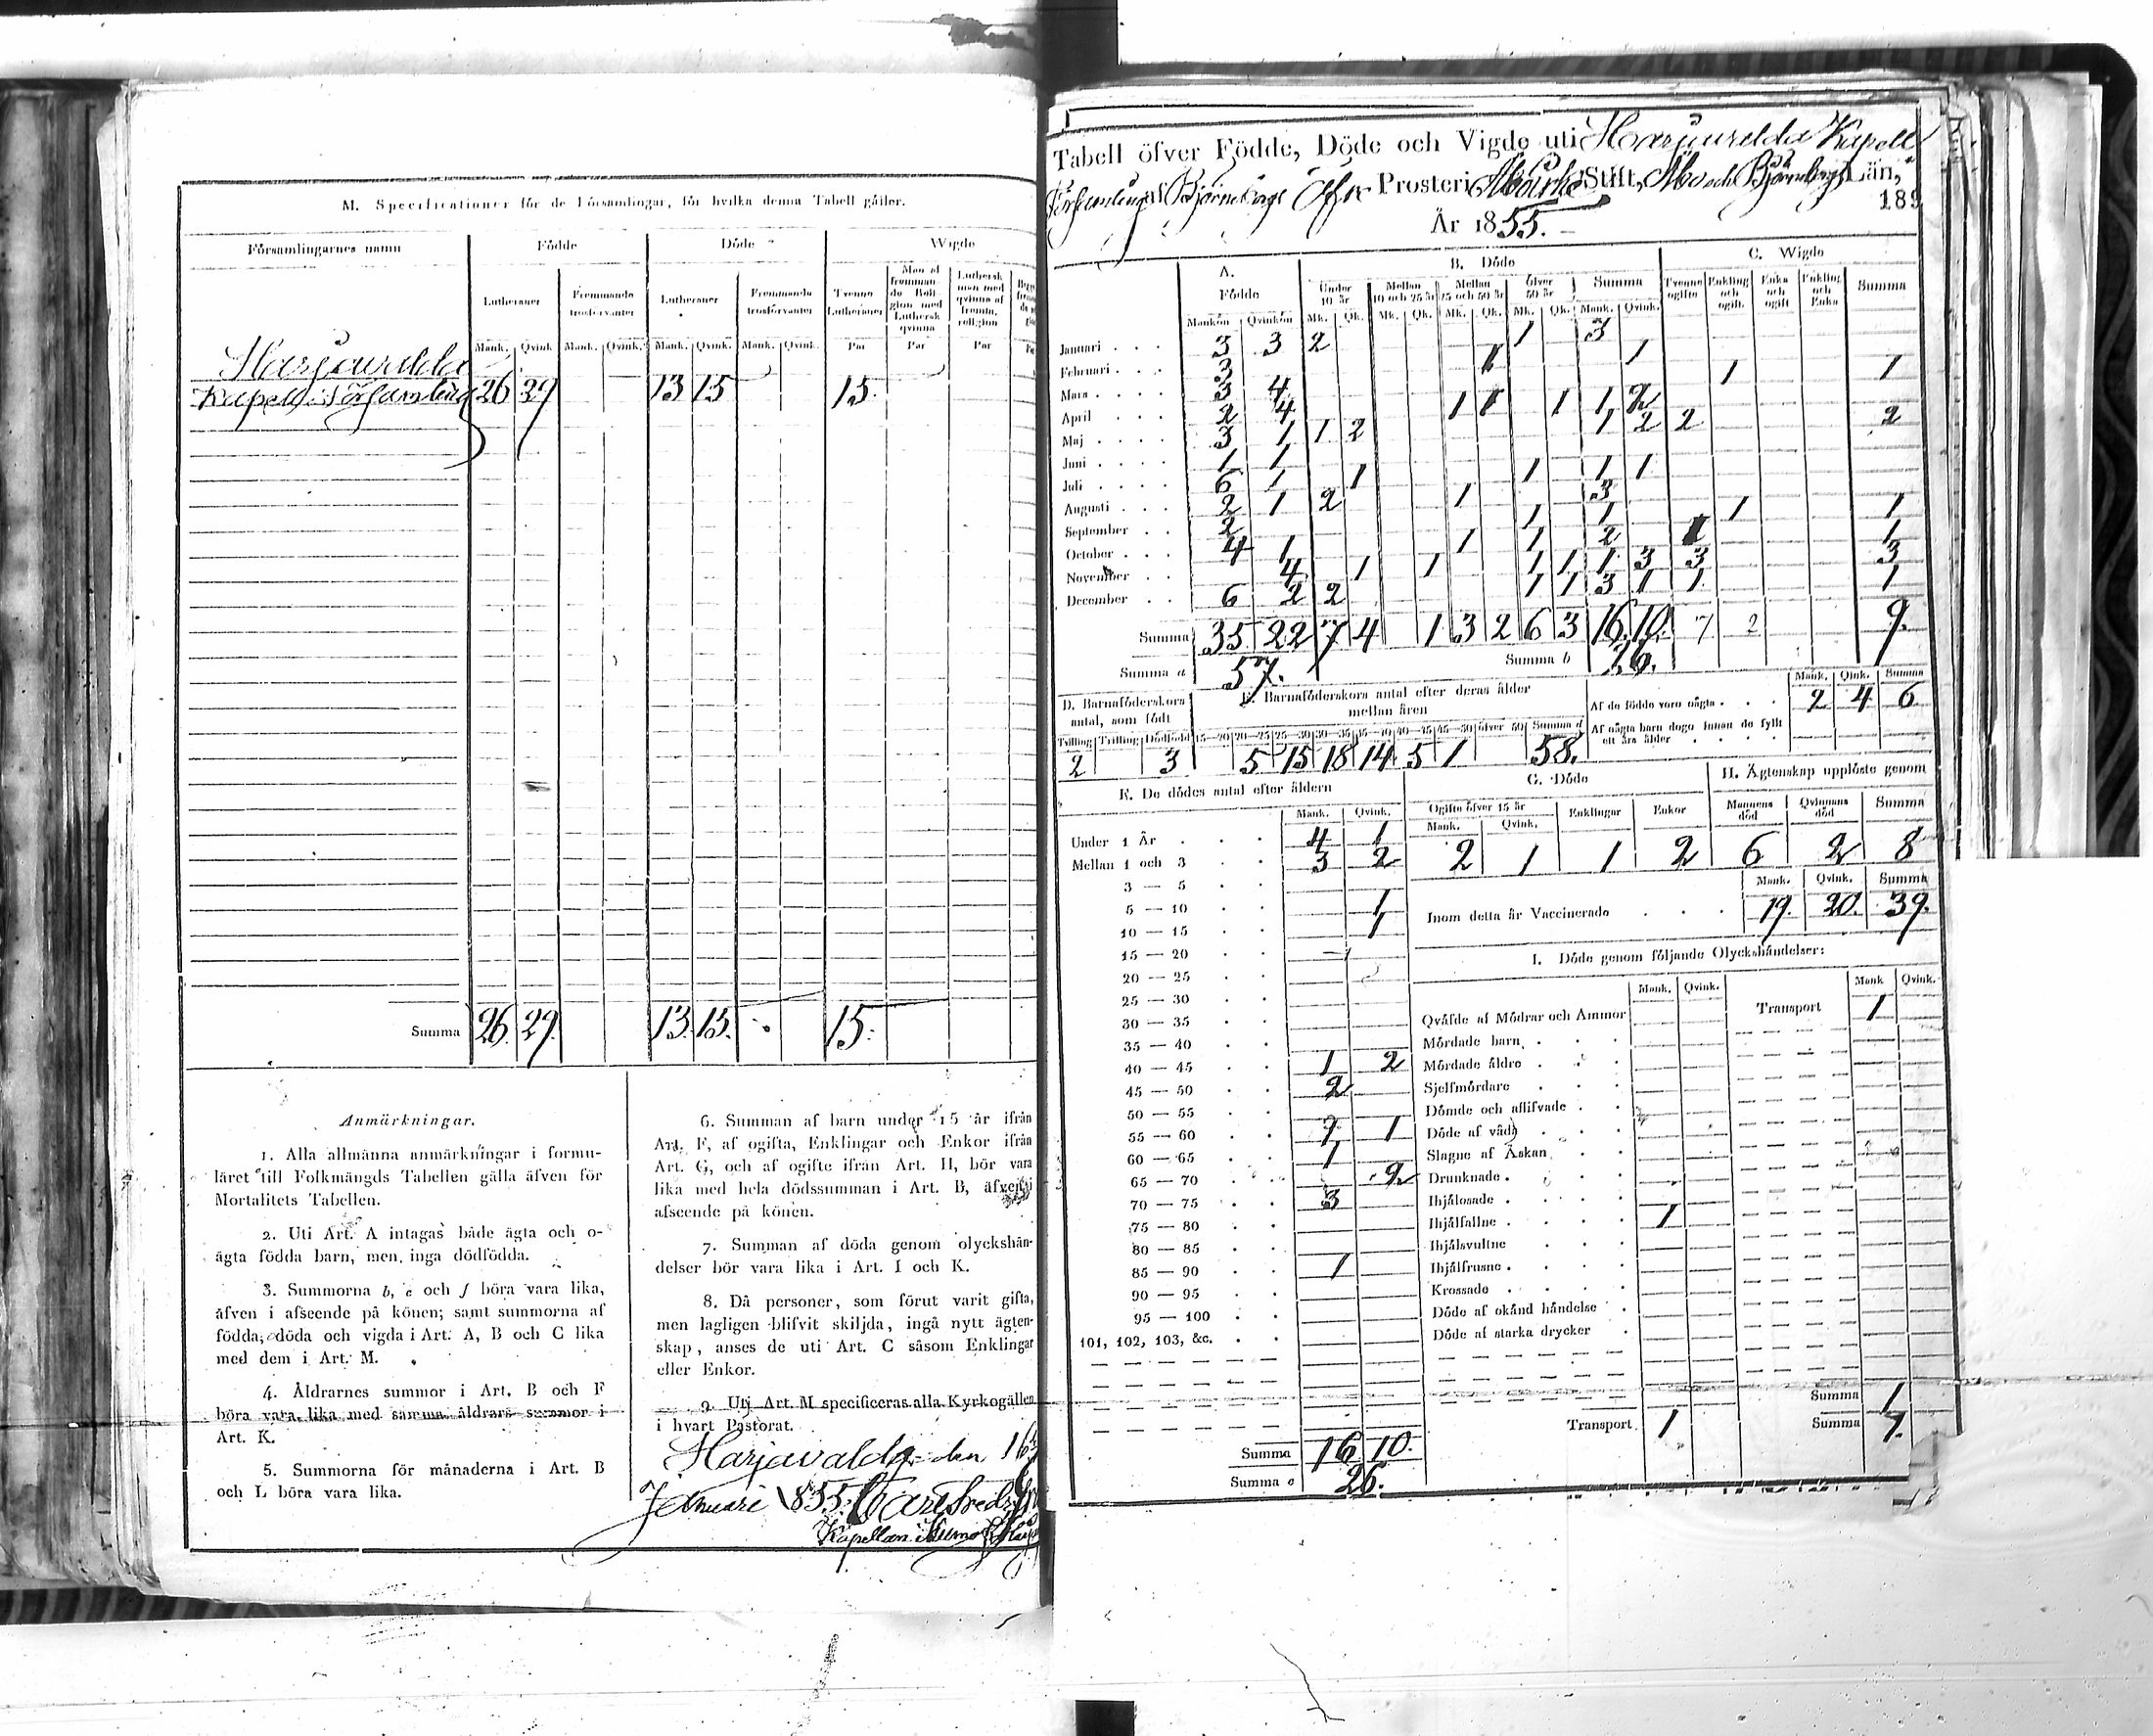 M. Specificationer för de Församlingar, för hvilka denna Tabell gäller.
Församlingarnes namn Födde Döde Wigde
Lutheraner Fremmande trosförvanter Lutheraner Fremmande trosförvanter Tvenne Lutheraner Man af fremmande Religion med Luthersk qvinna Luthersk man med qvinna af fremm. religion
Mank. Qvink Mank. Qvink. Mank. Qvink. Mank. Qvink. Par Par Par
Harjawalda
Kapells Församling 26 29 13 15 15.
Summa 26. 29. 13. 15. 15.
Anmärkningar.
1. Alla allmänna anmärkningar i formu-
läret till Folkmängds Tabellen gälla äfven för
Mortalitets Tabellen.
2. Uti Art. A intagas både ägta och o-
ägta födda barn, men inga dödfödda.
3. Summorna b, c och f böra vara lika,
äfven i afseende på könen; samt summorna af
födda, döda och vigda i Art. A, B och C lika
med dem i Art. M.
4. Åldrarnes summor i Art. B och F
böra vara lika med samma åldrars summor i
Art. K.
5. Summorna för månaderna i Art. B
och L böra vara lika.
6. Summan af barn under 15 år ifrån
Art. F, af ogifta, Enklingar och Enkor ifrån
Art. G, och af ogifte ifrån Art. H, bör vara
lika med hela dödssumman i Art. B, äfven i
afseende på könen.
7. Summan af döda genom olyckshän-
delser bör vara lika i Art. I och K.
8. Då personer, som förut varit gifta,
men lagligen blifvit skiljda, ingå nytt ägten-
skap, anses de uti Art. C såsom Enklingar
eller Enkor.
9. Uti Art. M specificeras alla Kyrkogällen
i hvart Pastorat.
Harjawalda den 16
Januari 1855. Carl Fredr.
Kapellan i
Tabell öfver Födde, Döde och Vigde uti Harjawalda Kapell
Församling af Björneborgs Öfre Prosteri Åbo Erke Stift, Åbo och Björneborgs Län,
189
År 1855.
A. Födde B. Döde C. Wigde
Under 10 år Mellan 10 och 25 år Mellan 25 och 50 år öfver 50 år Summa Tvenne ogifte Enkling och ogift. Enka och ogift Enkling och Enka Summa
Mankön Qvinkön Mk. Qk. Mk. Qk. Mk. Qk. Mk. Qk. Mank. Qvink.
Januari 3 3 2 1 3
Februari 3 1 1
Mars 3 4 1 1
April 2 4 1 1 1 1 2
Maj 3 1 1 2 1 2 2 2
Juni 1 1
Juli 6 1 1 1 1 1
Augusti 2 1 2 1 3
September 2 1 1 1 1
October 4 1 1 1 2 1 1
November 4 1 1 1 1 1 3 3 3
December 6 2 2 1 1 3 1 1 1
Summa 35 22 7 4 1 3 2 6 3 16 10. 7 2 9.
Summa a 57. Summa b 26.
D. Barnaföderskors antal, som födt
E. Barnaföderskors antal efter deras ålder mellan åren
Mank. Qink. Summa
Af de födde voro oägta 2 4 6
Af oägta barn dogo innan de fyllt ett års ålder
Tvilling Trilling Dödfödd 15—20 20—25 25—30 30—35 35—40 40—45 45—50 öfver 50 Summa d
2 3 5 15 18 14 5 1 58.
F. De dödes antal efter åldern
Mank. Qvink.
Under 1 År 4 1
Mellan 1 och 3 3 2
3 — 5
5 — 10 1
10 — 15 1
15 — 20
20 — 25
25 — 30
30 — 35
35 — 40
40 — 45 1 2
45 — 50 2
50 — 55
55 — 60 1
60 — 65 1
65 — 70 2
70 — 75 3
75 — 80
80 — 85
85 — 90 1
90 — 95
95 — 100
101, 102, 103, &c.
Summa 16 10.
Summa c 26.
G. Döde
Ogifte öfver 15 år Enklingar Enkor
Mank. Qvink.
2 1 1 2
H. Ägtenskap upplöste genom
Mannens död Qvinnans död Summa
6 2 8
Mank. Qvink. Summa
Inom detta år Vaccinerade 19. 20. 39.
I. Döde genom följande Olyckshändelser:
Mank. Qvink. Mank Qvink.
Qväfde af Mödrar och Ammor Transport 1
Mördade barn
Mördade äldre
Sjelfmördare
Dömde och aflifvade
Döde af våda
Slagne af Åskan
Drunknade
Ihjälosade
Ihjälfallne 1
Ihjälsvultne
Ihjälfrusne
Krossade
Döde af okänd händelse
Döde af starka drycker
Summa 1
Transport 1 Summa 1.